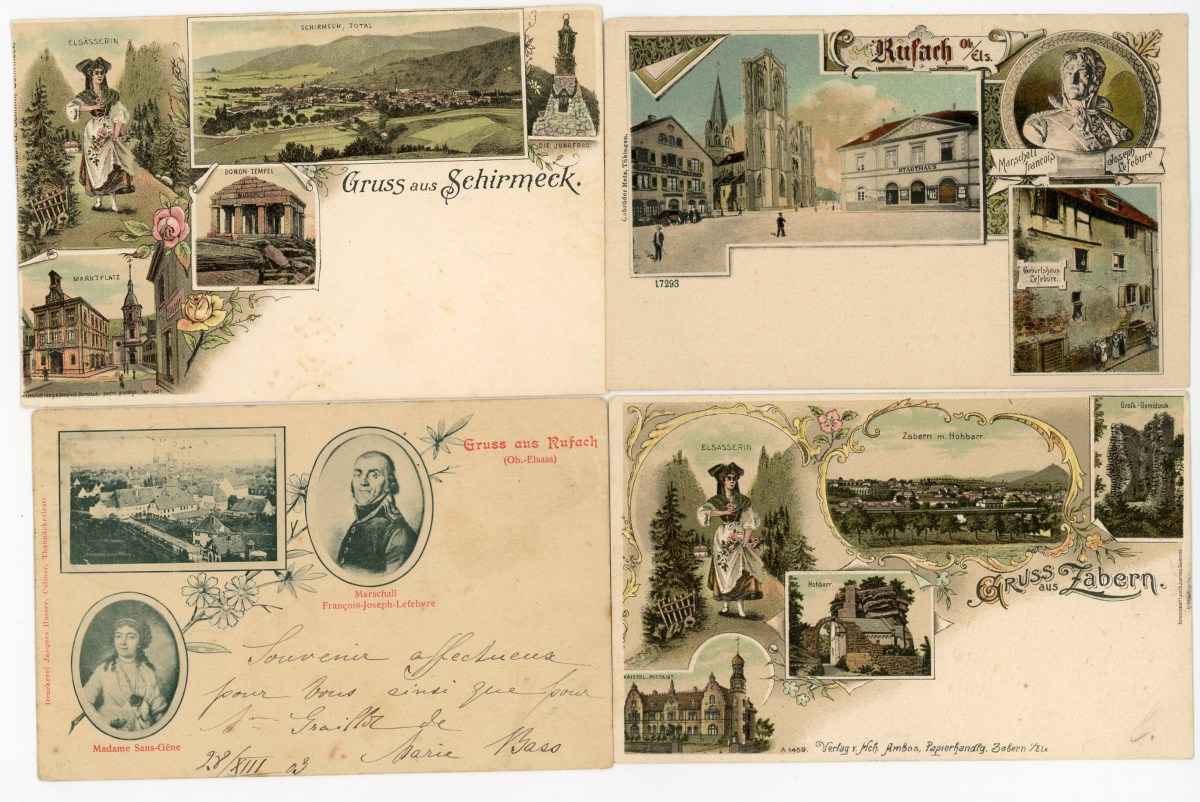 ELSÄSSERIN
SCHIRMECK, TOTAL
DIE JUNGFRAU
DONON-TEMPEL
Gruss aus Schirmeck.
MARKTPLATZ
Rufach Ob. Els.
Gebrüder Metz, Tübingen.
STADTHAUS
Marschall François
Joseph Lefebure
Geburtshaus
Lefebure.
17293
Gruss aus Rufach
(Ob.-Elsass)
Druckerei Jacques Husser, Colmar, Thannäckerlestr.
Marschall
François-Joseph-Lefebvre
Madame Sans-Gêne
Souvenir affectueux
pour Vous ainsi que pour
de
Marie Bass
28/XIII 03
ELSÄSSERIN
Zabern m. Hohbarr.
Gross-Geroldseck.
Hohbarr.
Gruss aus Zabern.
KAISERL. POSTAMT.
A 1459. Verlag v. Hch. Ambos, Papierhandlg. Zabern i/Els